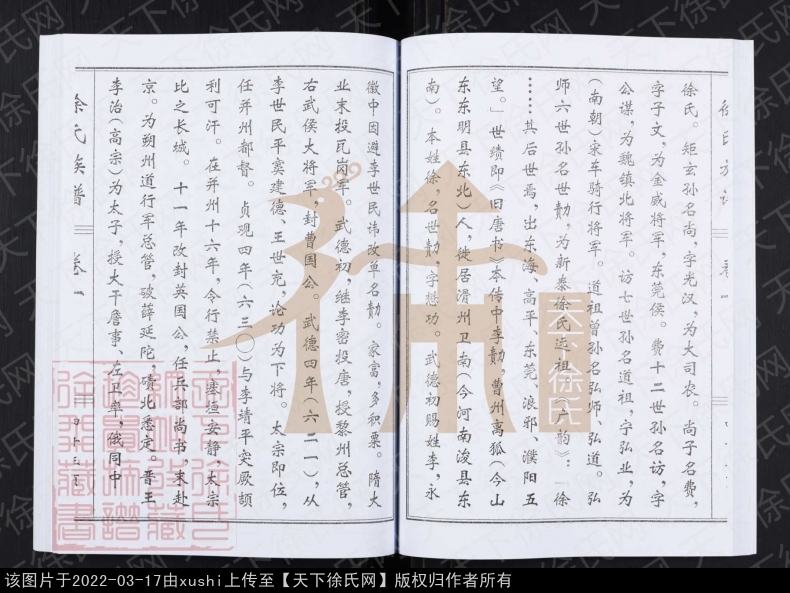 徐氏。矩玄孙名尚，字光汉，为大司农。尚子名费，
字子文，为金威将军，东莞侯。费十二世孙名访，字
公谋，为魏镇北将军。访七世孙名道祖，字弘业，为
（南朝）宋车骑行将军。道祖曾孙名弘师、弘道。弘
师六世孙名世勣，为新泰徐氏远祖。《广韵》：「徐
……其后世焉，出东海、高平、东莞、浪邪、濮阳五
望。」世绩即《旧唐书》本传中李勣，曹州离狐（今山
东东明县东北）人，徙居滑州卫南（今河南浚县东
南）。本姓徐，名世勣，字懋功。武德初赐姓李，永
徽中因避李世民讳改单名勣。家富，多积粟。隋大
业末投瓦岗军。武德初，继李密投唐，授黎州总管，
右武侯大将军，封曹国公。武德四年（六二一），从
李世民平窦建德、王世充，论功为下将。太宗即位，
任并州都督。贞观四年（六三〇）与李靖平突厥颉
利可汗。在并州十六年，令行禁止，塞垣安静，太宗
比之长城。十一年改封英国公，任兵部尚书，未赴
京。为朔州道行军总管，破薛延陀，碛北悉定。晋王
李治（高宗）为太子，授大干詹事、左卫率，俄同中
徐氏族谱
卷一
天下徐氏
该图片于2022-03-17由xushi上传至【天下徐氏网】版权归作者所有